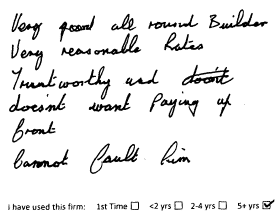 Very good all round Builder
Very reasonable Rates
Trustworthy and doesnt
doesnt want Paying up
front
Cannot fault him
I have used this firm: 1st Time ☐ <2 yrs ☐ 2-4 yrs ☐ 5+ yrs ☑